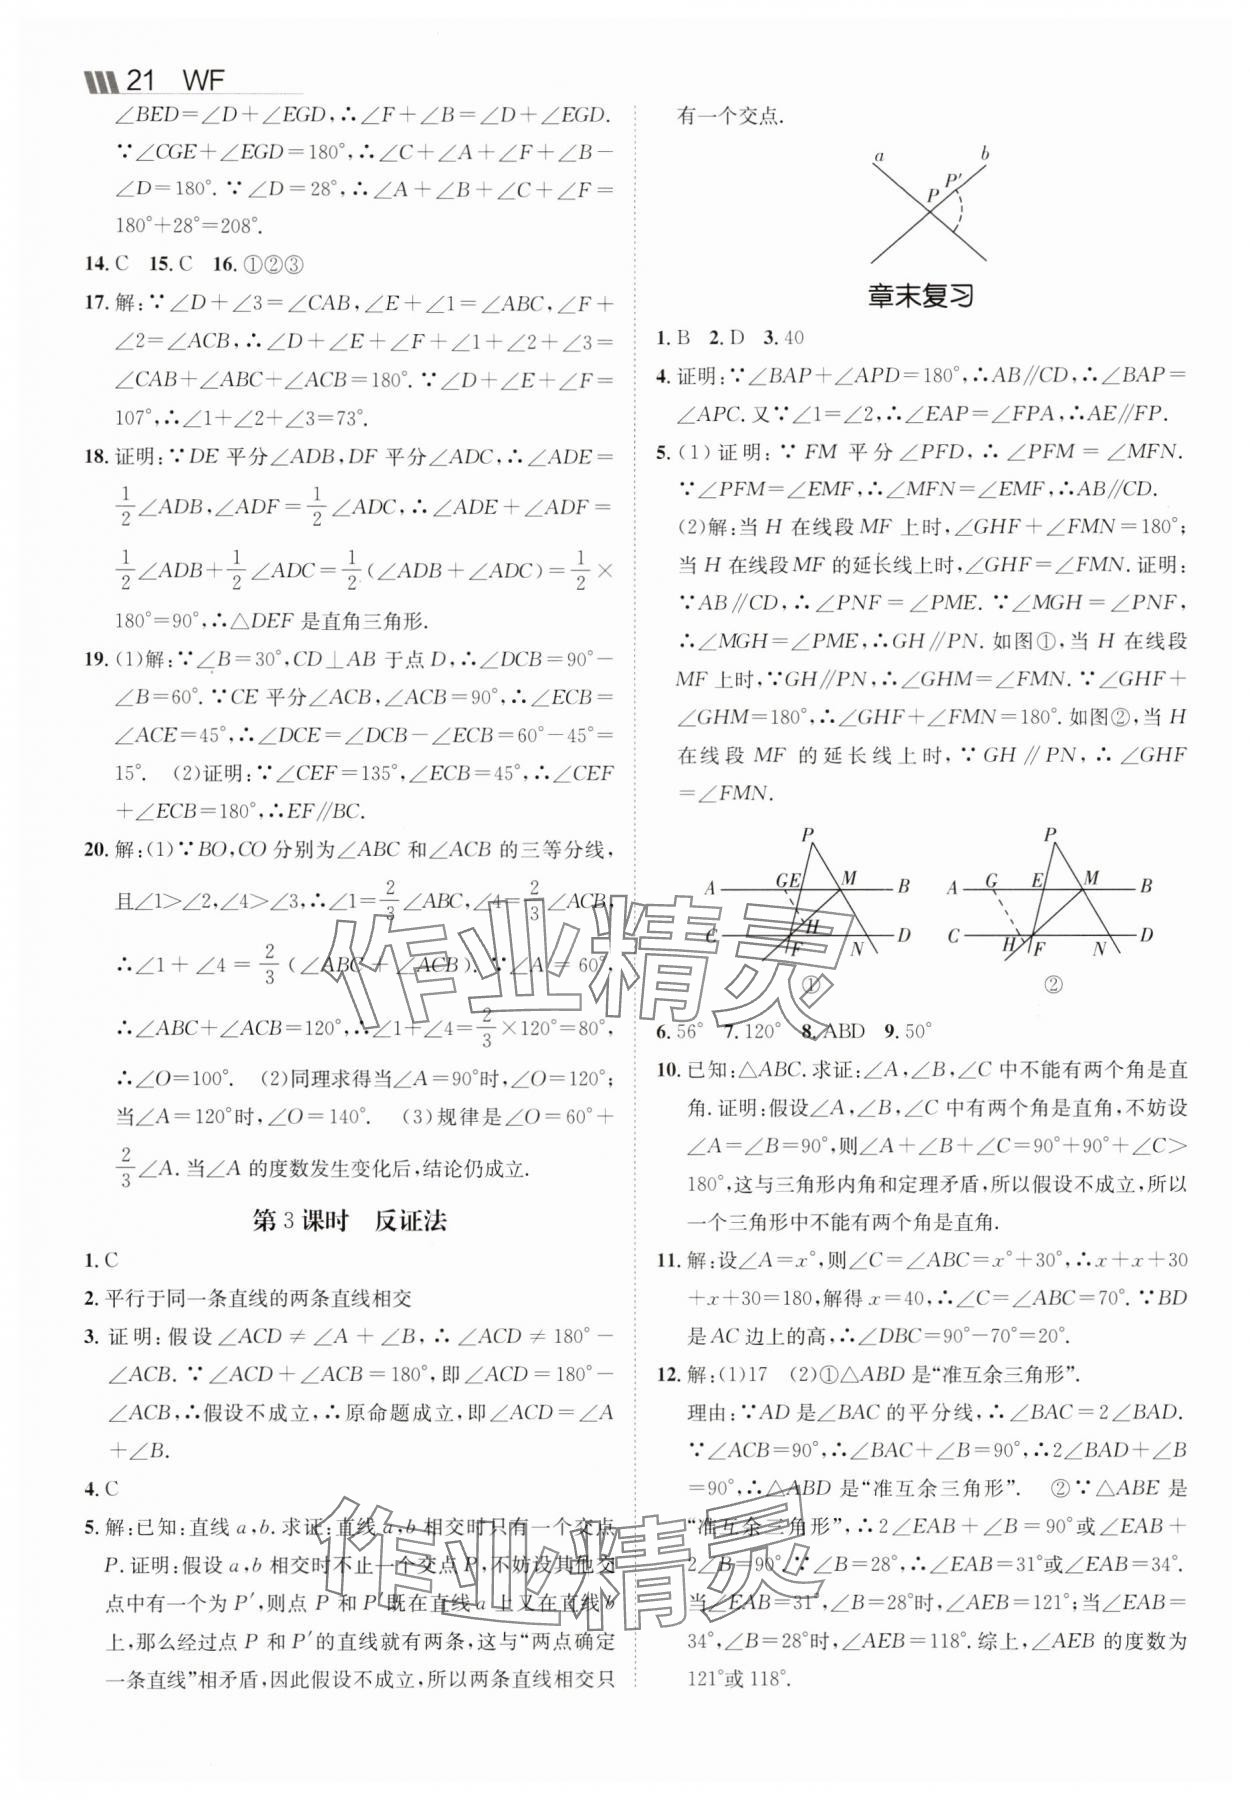 21 WF
∠BED=∠D+∠EGD,∴∠F+∠B=∠D+∠EGD.
∵∠CGE+∠EGD=180°,∴∠C+∠A+∠F+∠B-
∠D=180°.∵∠D=28°,∴∠A+∠B+∠C+∠F=
180°+28°=208°.
14.C 15.C 16.①②③
17.解:∵∠D+∠3=∠CAB,∠E+∠1=∠ABC,∠F+
∠2=∠ACB,∴∠D+∠E+∠F+∠1+∠2+∠3=
∠CAB+∠ABC+∠ACB=180°.∵∠D+∠E+∠F=
107°,∴∠1+∠2+∠3=73°.
18.证明:∵DE平分∠ADB,DF平分∠ADC,∴∠ADE=
1/2∠ADB,∠ADF=1/2∠ADC,∴∠ADE+∠ADF=
1/2∠ADB+1/2∠ADC=1/2(∠ADB+∠ADC)=1/2×
180°=90°,∴△DEF是直角三角形.
19.(1)解:∵∠B=30°,CD⊥AB于点D,∴∠DCB=90°-
∠B=60°.∵CE平分∠ACB,∠ACB=90°,∴∠ECB=
∠ACE=45°,∴∠DCE=∠DCB-∠ECB=60°-45°=
15°. (2)证明:∵∠CEF=135°,∠ECB=45°,∴∠CEF
+∠ECB=180°,∴EF∥BC.
20.解:(1)∵BO,CO分别为∠ABC和∠ACB的三等分线,
且∠1>∠2,∠4>∠3,∴∠1=2/3∠ABC,∠4=2/3∠ACB,
∴∠1+∠4=2/3(∠ABC+∠ACB).∵∠A=60°,
∴∠ABC+∠ACB=120°,∴∠1+∠4=2/3×120°=80°,
∴∠O=100°. (2)同理求得当∠A=90°时,∠O=120°;
当∠A=120°时,∠O=140°. (3)规律是∠O=60°+
2/3∠A.当∠A的度数发生变化后,结论仍成立.
第3课时 反证法
1.C
2.平行于同一条直线的两条直线相交
3.证明:假设∠ACD≠∠A+∠B,∴∠ACD≠180°-
∠ACB.∵∠ACD+∠ACB=180°,即∠ACD=180°-
∠ACB,∴假设不成立,∴原命题成立,即∠ACD=∠A
+∠B.
4.C
5.解:已知:直线a,b.求证:直线a,b相交时只有一个交点
P.证明:假设a,b相交时不止一个交点P,不妨设其他交
点中有一个为P′,则点P和P′既在直线a上又在直线b
上,那么经过点P和P′的直线就有两条,这与“两点确定
一条直线”相矛盾,因此假设不成立,所以两条直线相交只
有一个交点.
a b P P′
章末复习
1.B 2.D 3.40
4.证明:∵∠BAP+∠APD=180°,∴AB∥CD,∴∠BAP=
∠APC.又∵∠1=∠2,∴∠EAP=∠FPA,∴AE∥FP.
5.(1)证明:∵FM平分∠PFD,∴∠PFM=∠MFN.
∵∠PFM=∠EMF,∴∠MFN=∠EMF,∴AB∥CD.
(2)解:当H在线段MF上时,∠GHF+∠FMN=180°;
当H在线段MF的延长线上时,∠GHF=∠FMN.证明:
∵AB∥CD,∴∠PNF=∠PME.∵∠MGH=∠PNF,
∴∠MGH=∠PME,∴GH∥PN.如图①,当H在线段
MF上时,∵GH∥PN,∴∠GHM=∠FMN.∵∠GHF+
∠GHM=180°,∴∠GHF+∠FMN=180°.如图②,当H
在线段MF的延长线上时,∵GH∥PN,∴∠GHF
=∠FMN.
P P
A GE M B A G E M B
C F H N D C H F N D
① ②
6.56° 7.120° 8.ABD 9.50°
10.已知:△ABC.求证:∠A,∠B,∠C中不能有两个角是直
角.证明:假设∠A,∠B,∠C中有两个角是直角,不妨设
∠A=∠B=90°,则∠A+∠B+∠C=90°+90°+∠C>
180°,这与三角形内角和定理矛盾,所以假设不成立,所以
一个三角形中不能有两个角是直角.
11.解:设∠A=x°,则∠C=∠ABC=x°+30°,∴x+x+30
+x+30=180,解得x=40,∴∠C=∠ABC=70°.∵BD
是AC边上的高,∴∠DBC=90°-70°=20°.
12.解:(1)17 (2)①△ABD是“准互余三角形”.
理由:∵AD是∠BAC的平分线,∴∠BAC=2∠BAD.
∵∠ACB=90°,∴∠BAC+∠B=90°,∴2∠BAD+∠B
=90°,∴△ABD是“准互余三角形”. ②∵△ABE是
“准互余三角形”,∴2∠EAB+∠B=90°或∠EAB+
2∠B=90°.∵∠B=28°,∴∠EAB=31°或∠EAB=34°.
当∠EAB=31°,∠B=28°时,∠AEB=121°;当∠EAB=
34°,∠B=28°时,∠AEB=118°.综上,∠AEB的度数为
121°或118°.
作业精灵
作业精灵